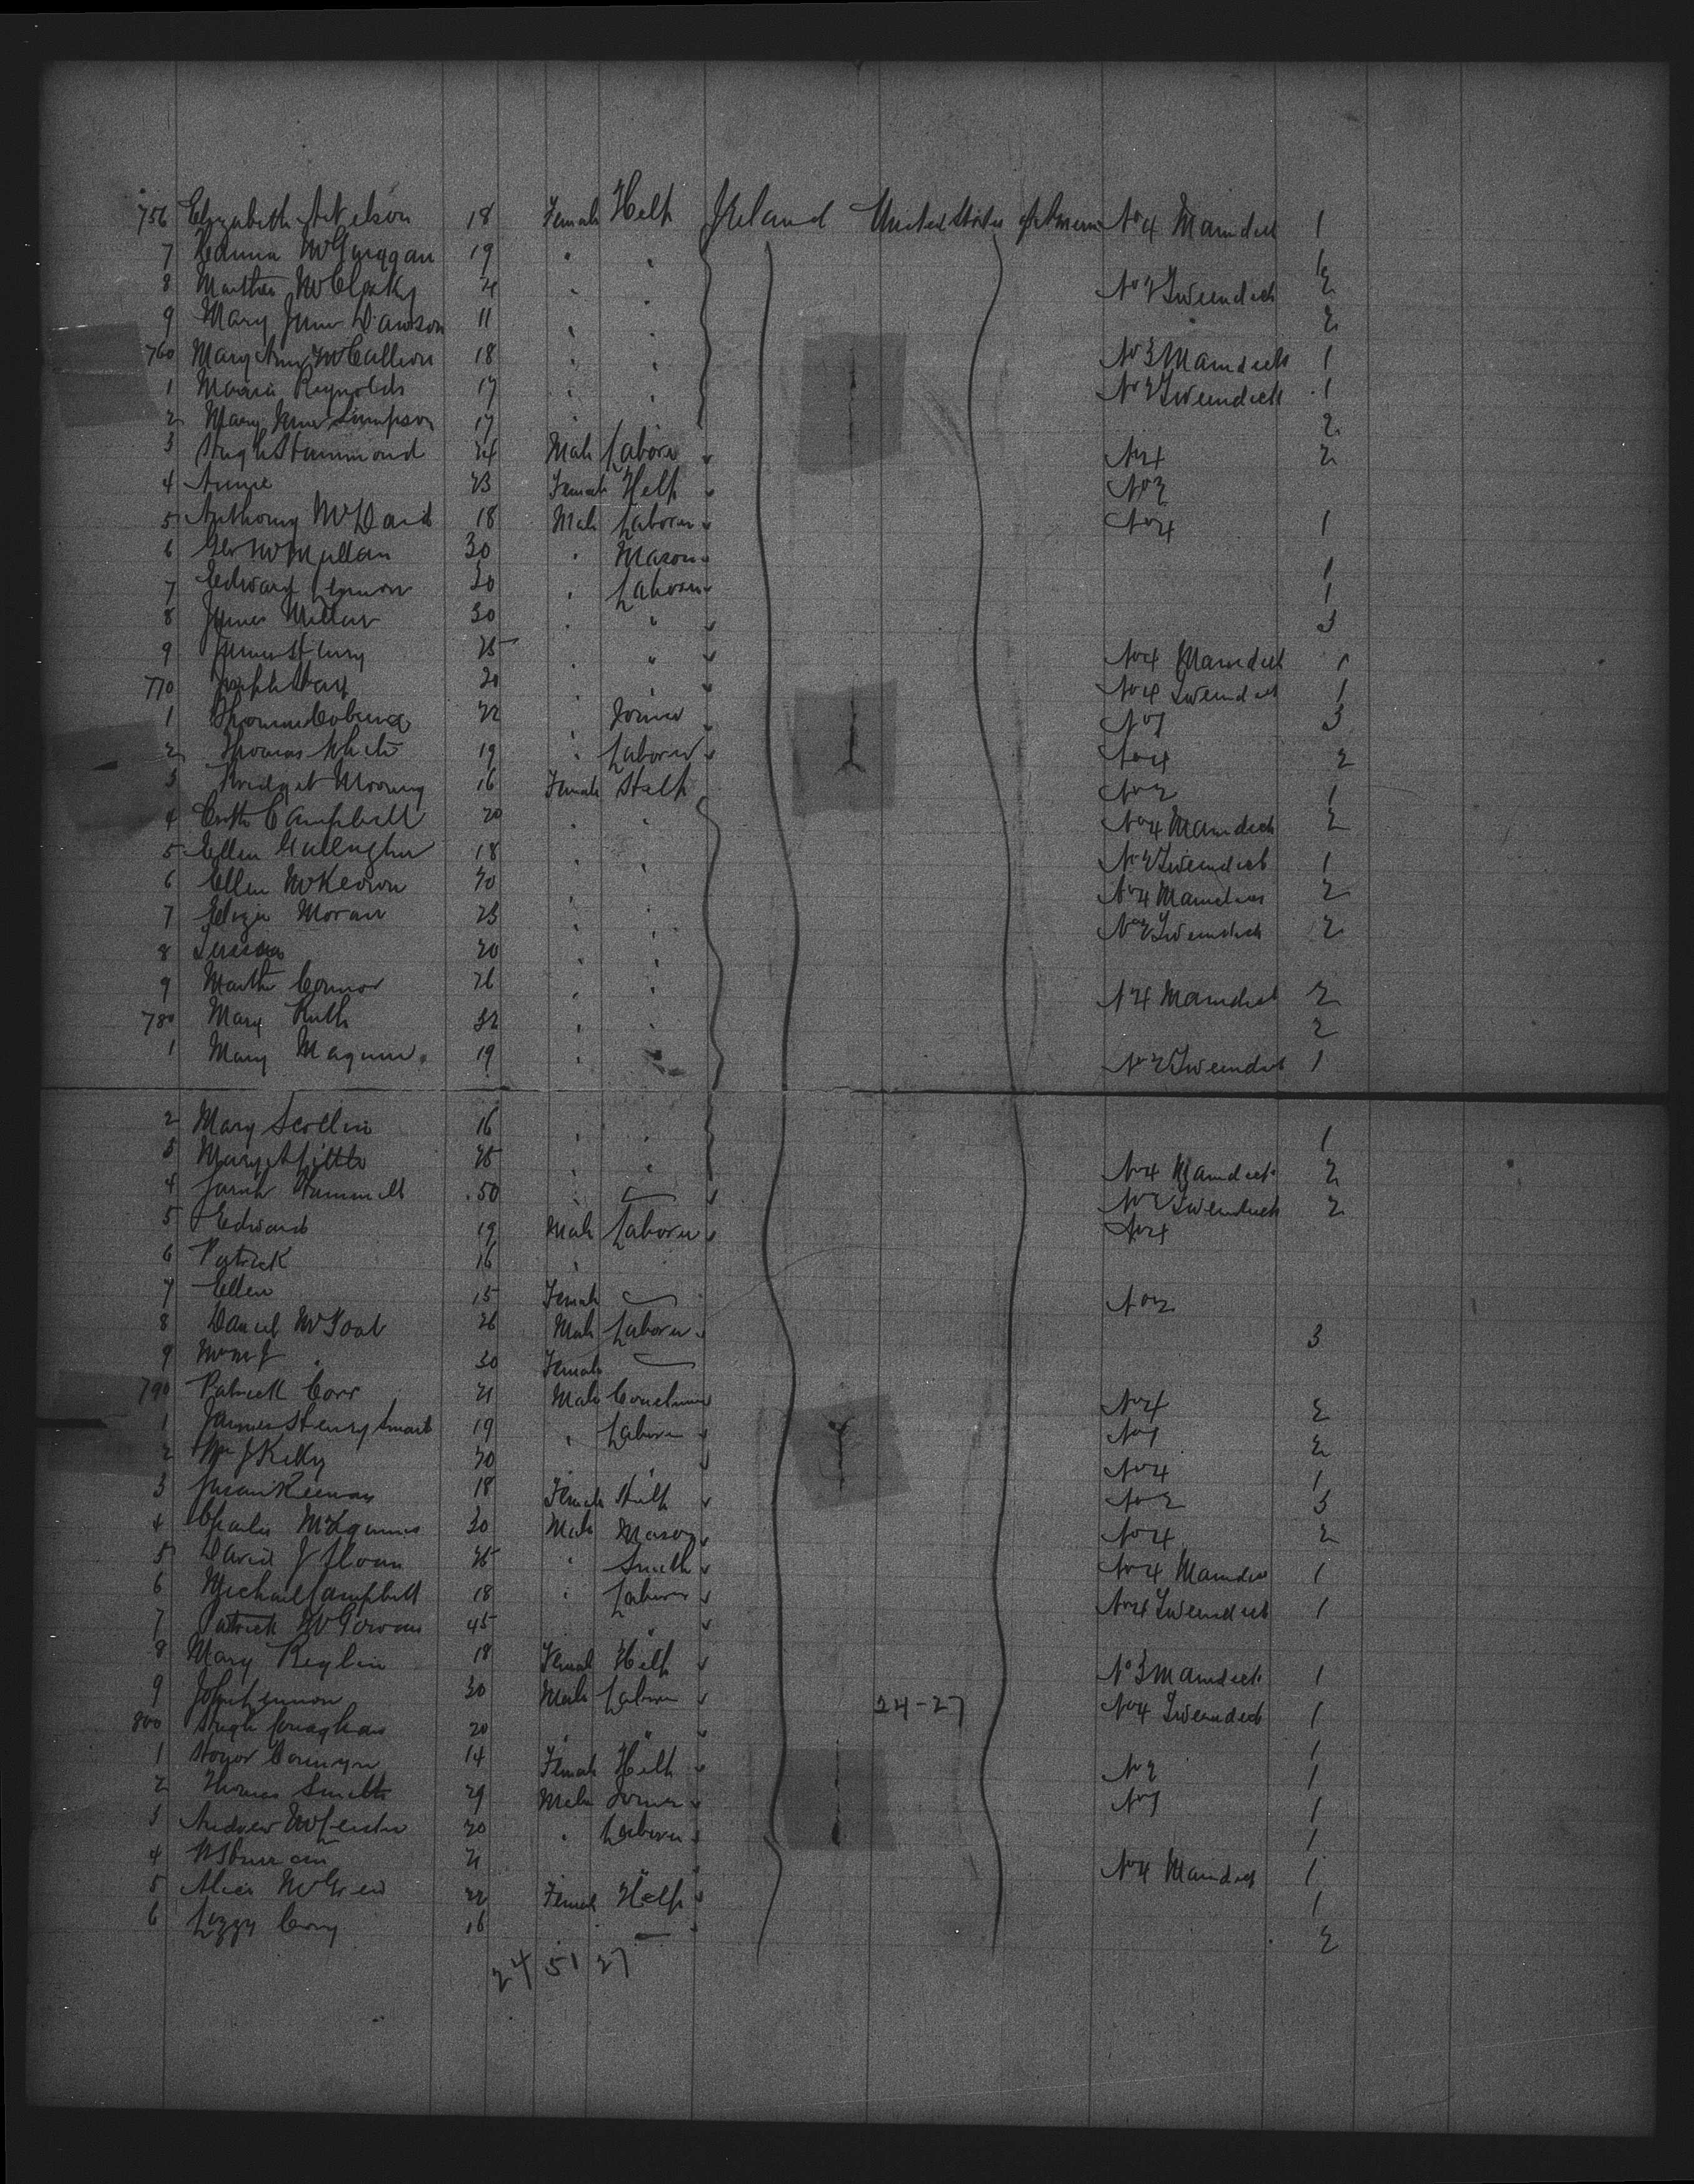 756 Elizabeth A Nelson 18 Female Help Ireland United States of No 4 Maindeck 1
7 McGuiggan 19 " " 1
8 Martha McClosky " " No 2 Tweendeck 2
9 Mary Jane Dawson 11 " " 2
760 Mary Ann McCallion 18 " " No 3 Maindeck 1
1 Maria Reynolds 17 " " No 2 Tweendeck 1
2 Mary Jane Simpson 17 " " 2
3 Hugh Hammond 24 Male Laborer " No 4 2
4 Annie 23 Female Help " No 2
5 Anthony McDaid 18 Male Laborer " No 4 1
6 McMullan 30 " Mason " 1
7 Edward Lennon 30 " Laborer " 1
8 James Millar 30 " " " 3
9 James Henry 25 " " " No 4 Maindeck 1
770 Joseph 20 " " " No 4 Tweendeck 1
1 Thomas 22 " Joiner " No 1 3
2 Thomas White 19 " Laborer " No 4 2
3 Bridget Mooney 16 Female Help No 2 1
4 Campbell 20 " " No 4 Maindeck 2
5 Ellen Gallagher 18 " " No 2 Tweendeck 1
6 Ellen McKeown 20 " " No 4 Maindeck 2
7 Eliza Moran 23 " " No 2 Tweendeck 2
8 Teresa 20 " "
9 Martha Connor 26 " " No 4 Maindeck 2
780 Mary Ruth 32 " " 2
1 Mary Maguire 19 " " No 2 Tweendeck 1
2 Mary Scollin 16 " " 1
3 Mary A Little 25 " " No 4 Maindeck 2
4 Sarah Hammill 50 " — " No 2 Tweendeck 2
5 Edward 19 Male Laborer " No 4
6 Patrick 16 "
7 Ellen 15 Female — No 2
8 Daniel McCool 26 Male Laborer " 3
9 30 Female —
790 Patrick Corr 21 Male " No 4 2
1 James Henry Smart 19 " Laborer " No 1 2
2 Wm J Kelly 20 " " " No 4 1
3 Susan Keenan 18 Female Help " No 2 3
4 Charles McGuinness 30 Male Mason " No 4 2
5 David J Sloan 25 " Smith " No 4 Maindeck 1
6 Michael Campbell 18 " Laborer " No 4 Tweendeck 1
7 Patrick McGowan 45 " " "
8 Mary 18 Female Help " No 3 Maindeck 1
9 John Lennon 30 Male Laborer " 24-27 No 4 Tweendeck 1
800 Hugh 20 " " " 1
1 14 Female Help " No 2 1
2 Thomas Smith 29 Male Joiner " No 1 1
3 Andrew McLeister 20 " Laborer " 1
4 21 " " No 4 Maindeck 1
5 Alice McGrew 22 Female Help " 1
6 Lizzy 16 " — " 2
24 51 27